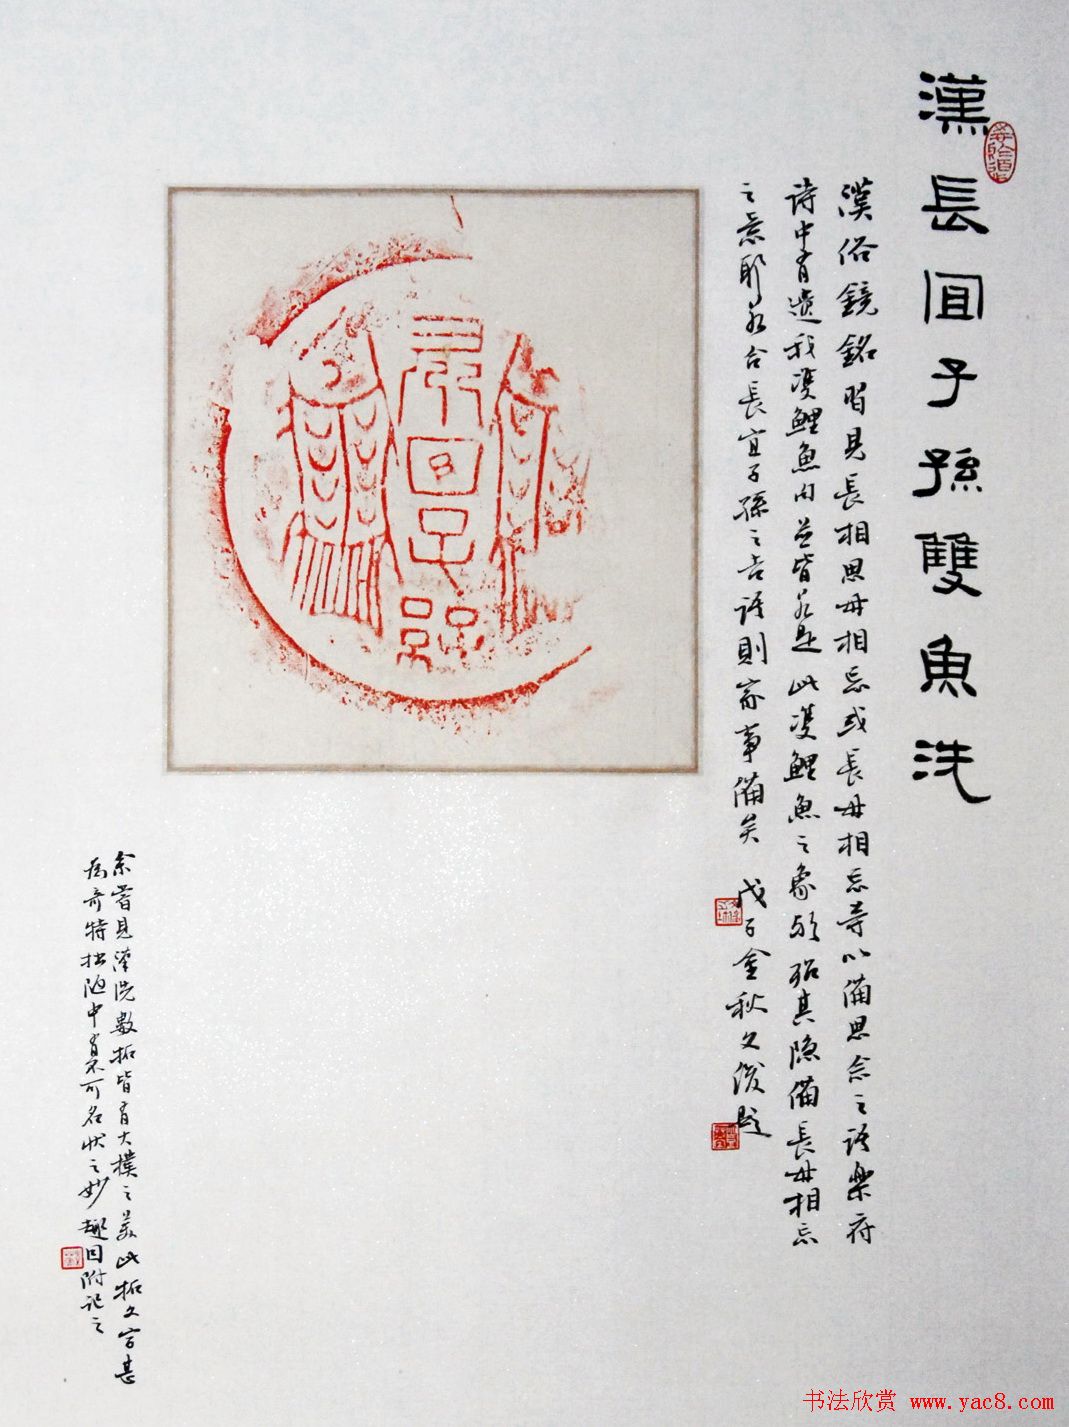 漢長宜子孫雙魚洗
漢俗鏡銘習見長相思毋相忘或長毋相忘等以備思念之語樂府
詩中有遺我雙鯉魚句並皆如是此雙鯉魚之象歟殆其隱備長毋相忘
之意耶如合長宜子孫之吉語則家事備矣 戊子金秋文浚題
長宜子孫
余嘗見漢洗數拓皆有大樸之美此拓文字甚
為奇特拙陋中有不可名狀之妙趣因附記之
书法欣赏 www.yac8.com